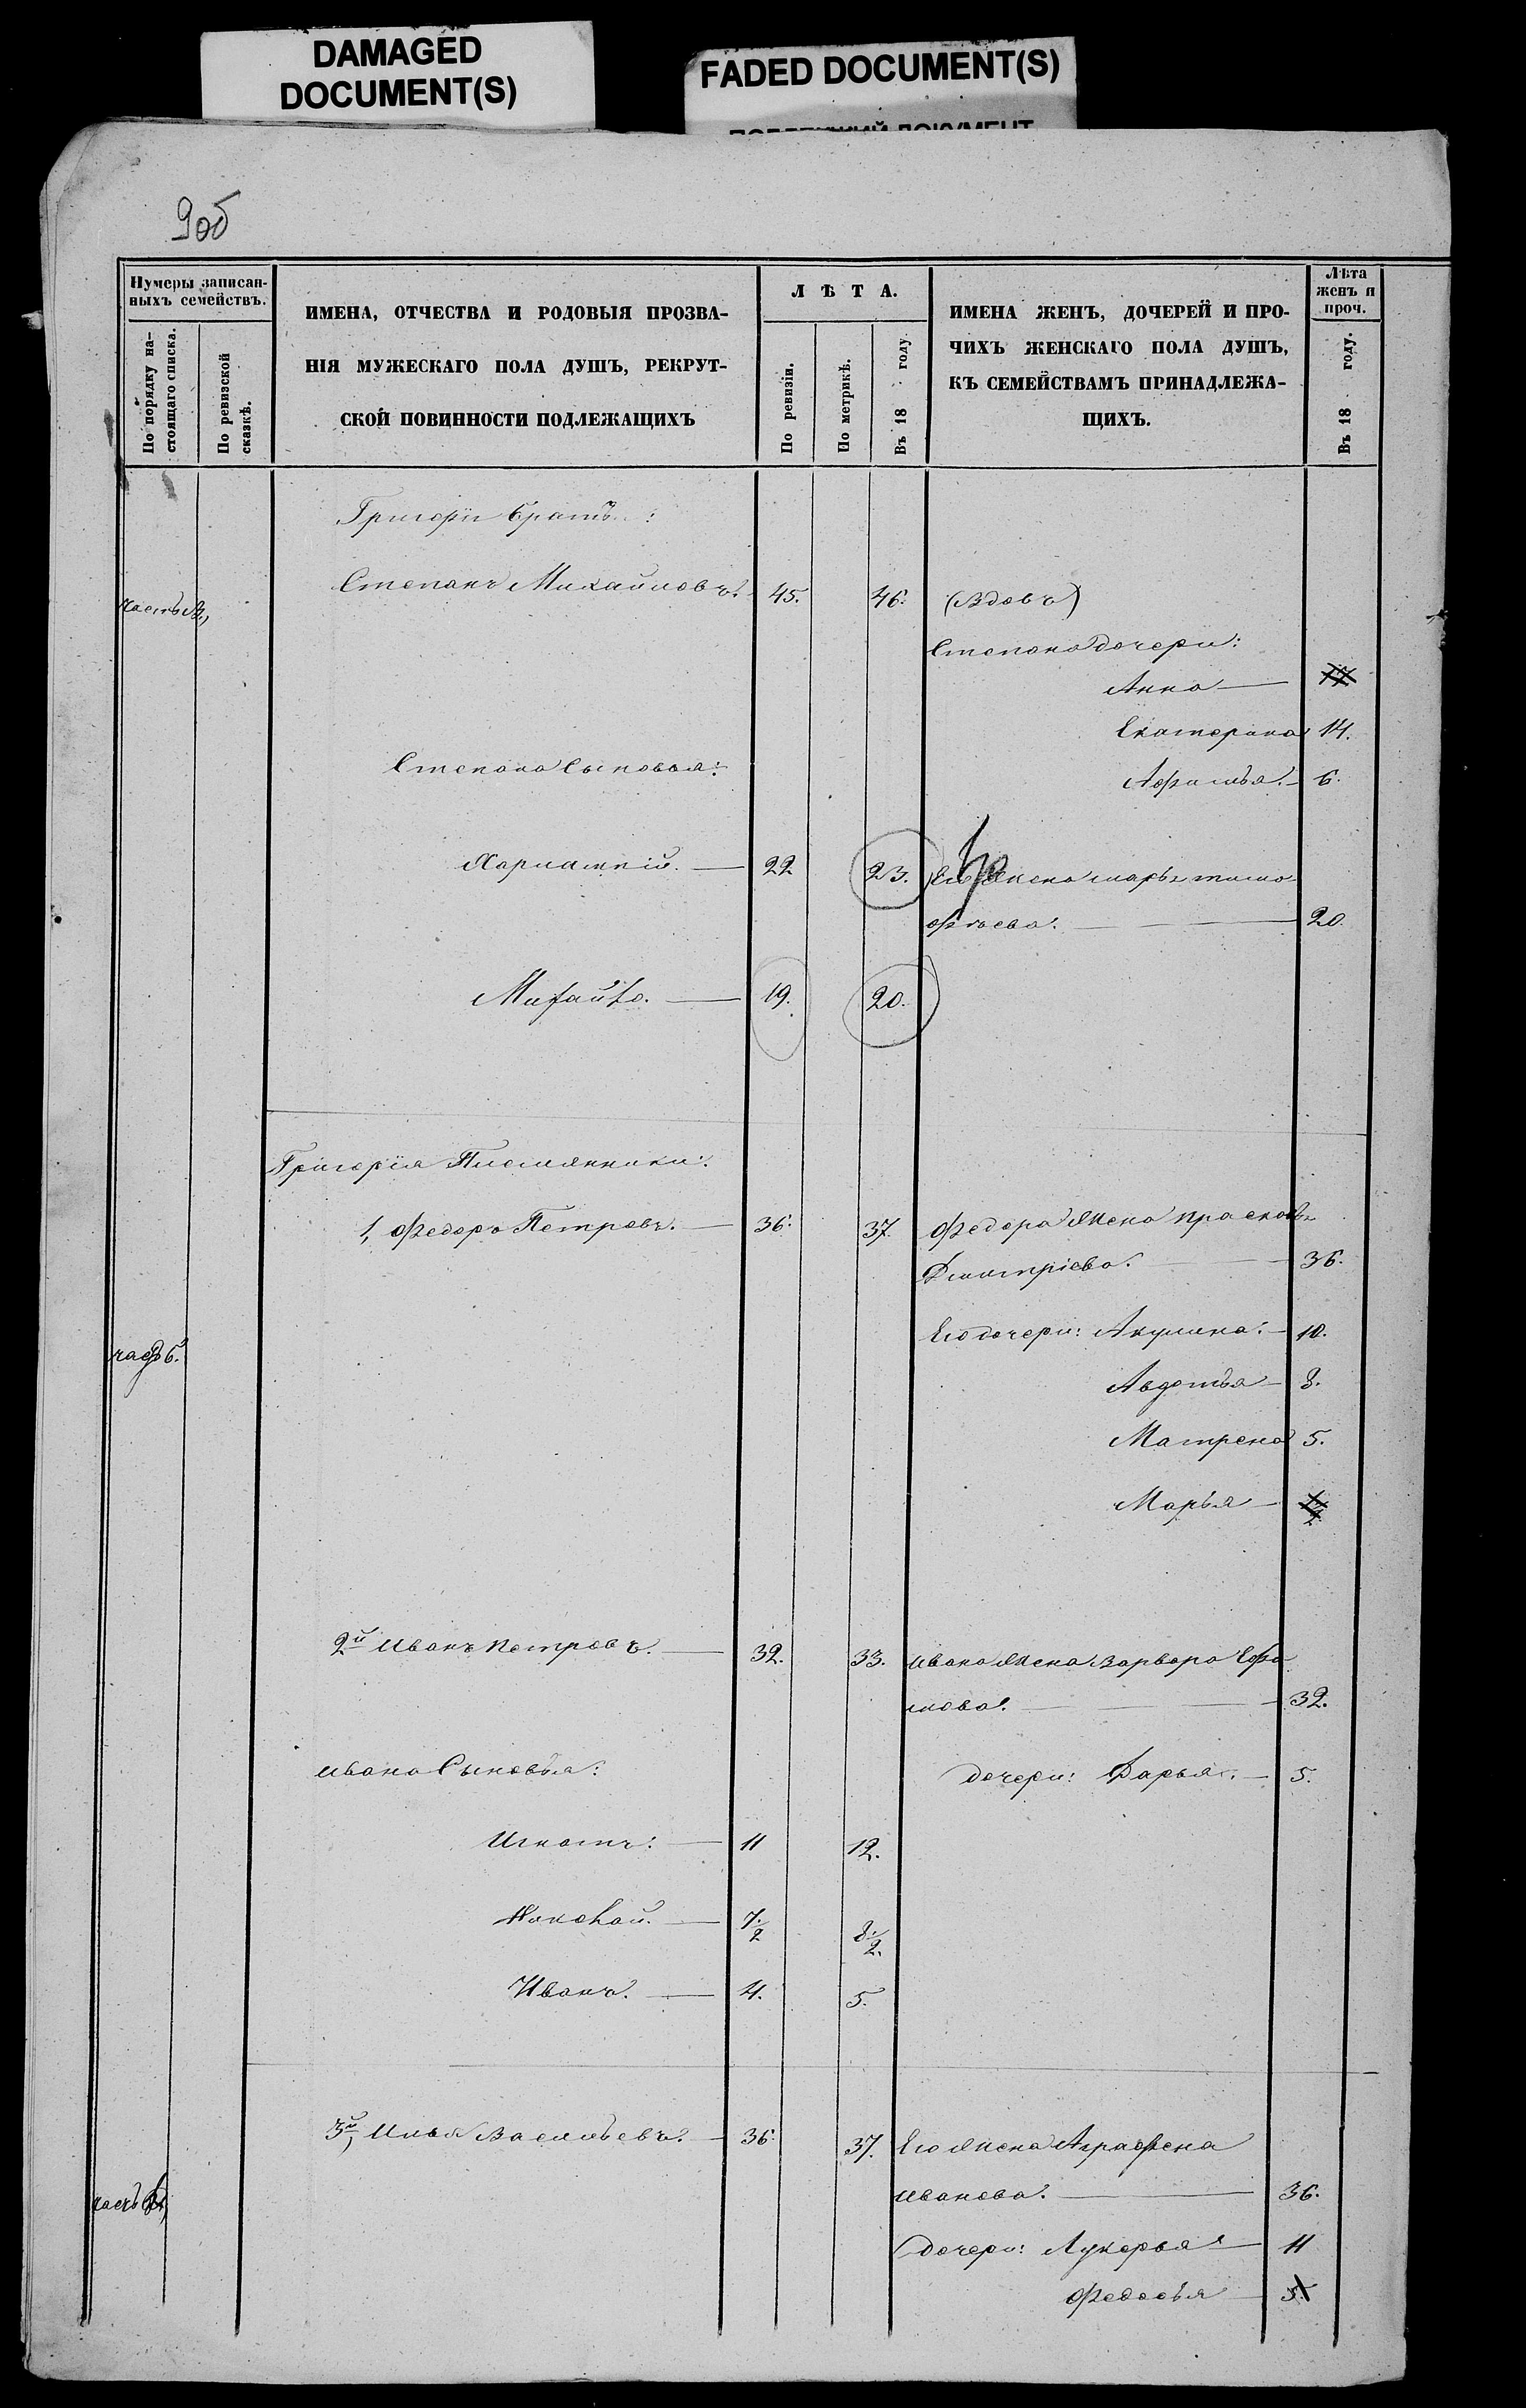 DAMAGED
DOCUMENT(S)
FADED DOCUMENT(S)
9об
Нумеры записан-
ныхъ семействъ.
По порядку на-
стоящаго списка.
По ревизской
сказкѣ.
ИМЕНА, ОТЧЕСТВА И РОДОВЫЯ ПРОЗВА-
НІЯ МУЖЕСКАГО ПОЛА ДУШЪ, РЕКРУТ-
СКОЙ ПОВИННОСТИ ПОДЛЕЖАЩИХЪ
ЛѢТА.
По ревизіи.
По метрикѣ.
Въ 18 году.
ИМЕНА ЖЕНЪ, ДОЧЕРЕЙ И ПРО-
ЧИХЪ ЖЕНСКАГО ПОЛА ДУШЪ,
КЪ СЕМЕЙСТВАМЪ ПРИНАДЛЕЖА-
ЩИХЪ.
Лѣта
женъ и
проч.
Въ 18 году.
Григорія братъ:
часть
Степанъ Михайловъ. 45. 46. (Вдовъ)
Степана дочери:
Анна —
Екатерина 14.
Степана Сыновья:
Афимья. — 6.
Харлампій. — 22 23. Его жена марья тимо
фѣева. — 20.
Михайло. — 19. 20.
Григорія Племянники:
1, Федоръ Петровъ. — 36. 37. Федора жена прасковья
Дмитріева. — 36.
часть б.
Его дочери: Акулина. — 10.
Авдотья — 8.
Матрена 5.
Марья —
2й Иванъ Петровъ. — 32. 33. Ивана жена Варвара Ефи
мова. — 32.
Ивана Сыновья:
дочери: Дарья. — 5.
Игнатъ: — 11 12.
Николай. — 7./2 8./2.
Иванъ. — 4. 5.
3й, Илья Васильевъ. — 36. 37. Его жена Аграфена
Иванова. — 36.
часть
дочери: Лукерья — 11
Федосья — 5.